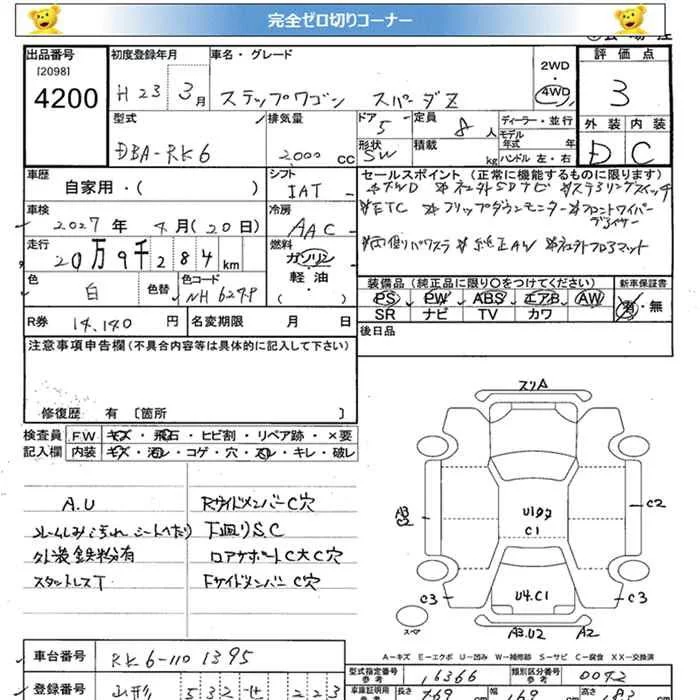 完全ゼロ切りコーナー
出品番号 初度登録年月 車名・グレード 評価点
[2098] 2WD・4WD
4200 H23 3月 ステップワゴン スパーダZ 3
型式 排気量 ドア 5 定員 8人 ディーラー・並行 外装 内装
モデル年式 年
DBA-RK6 2000 CC 形状 SW 積載 kg ハンドル 左・右 D C
車歴 シフト セールスポイント(正常に機能するものに限ります)
自家用・( ) IAT ☆4WD ☆社外SDナビ ☆ステアリングスイッチ
車検 冷房 ☆ETC ☆フリップダウンモニター ☆フロントワイパー
2027年 4月(20日) AAC デアイサー
走行 燃料 ☆両側パワスラ ☆純正AW ☆社外フロアマット
20万9千284km ガソリン
軽・油
( )
色 色替 色コード 装備品(純正品に限り○をつけてください) 新車保証書
白 NH624P PS PW ABS エアB AW 有・無
R券 14,140円 名変期限 月 日 SR ナビ TV カワ
注意事項申告欄(不具合内容等は具体的に記入して下さい) 後日品
修復歴 有 [箇所 ]
検査員 FW キズ・飛石・ヒビ割・リペア跡・×要
記入欄 内装 キズ・汚レ・コゲ・穴・スレ・キレ・破レ
スリA
A.U RサイドメンバーC穴
ルームしみ汚れ シートへたり 下廻りS.C
外装鉄粉有 ロアサポートC大C穴
スタットレスT FサイドメンバーC穴
A3
C2
C1
C2
U4.C1
C3 C3
スペア A3.U2 A2
A-キズ E-エクボ U-凹み W-補修跡 S-サビ C-腐食 XX-交換済
車台番号 RK6-1101395 型式指定番号 参考 16366 類別区分番号 参考 0072
登録番号 山形 532 せ 223 車庫証明用 長さ 幅 高さ